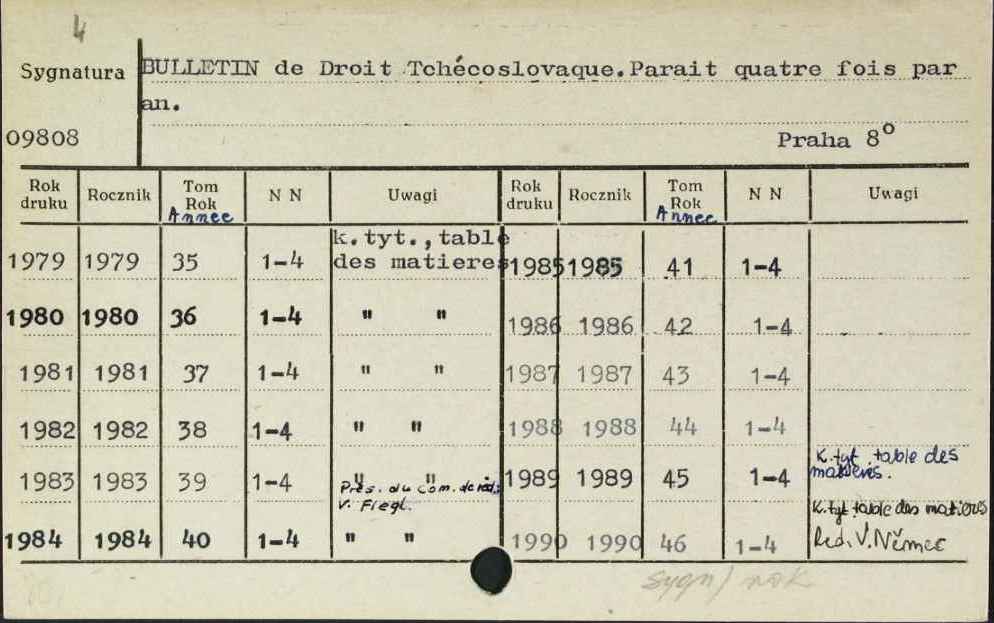 4
Sygnatura BULLETIN de Droit Tchécoslovaque.Parait quatre fois par
an.
09808 Praha 8º
Rok druku Rocznik Tom Rok Annee N N Uwagi Rok druku Rocznik Tom Rok Annee N N Uwagi
k.tyt.,table
1979 1979 35 1-4 des matieres 1985 1985 41 1-4
1980 1980 36 1-4 " " 1986 1986 42 1-4
1981 1981 37 1-4 " " 1987 1987 43 1-4
1982 1982 38 1-4 " " 1988 1988 44 1-4
1983 1983 39 1-4 " " 1989 1989 45 1-4 K.tyt table des
matieres.
Prés. du Com. de réd.:
V. Fiegl.
K.tyt table des matieres
1984 1984 40 1-4 " " 1990 1990 46 1-4 Red. V. Němec
sygn/ rok